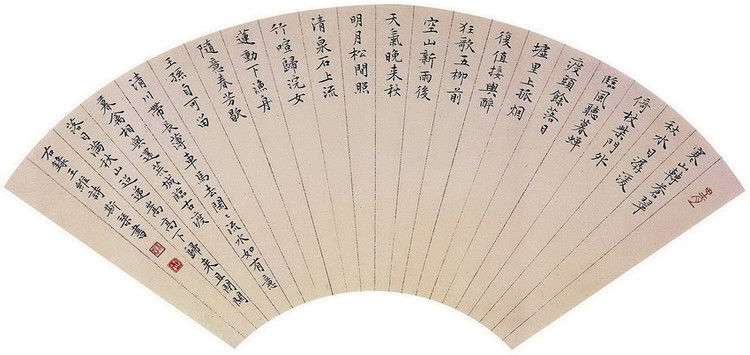 寒山轉蒼翠
秋水日潺湲
倚杖柴門外
臨風聽暮蟬
渡頭餘落日
墟里上孤烟
復值接輿醉
狂歌五柳前
空山新雨後
天氣晚來秋
明月松間照
清泉石上流
竹喧歸浣女
蓮動下漁舟
隨意春芳歇
王孫自可留
清川帶長薄車馬去閑〻流水如有意
暮禽相與還荒城臨古渡
落日滿秋山迢遞嵩高下歸來且閉關
右錄王維詩斯琴書